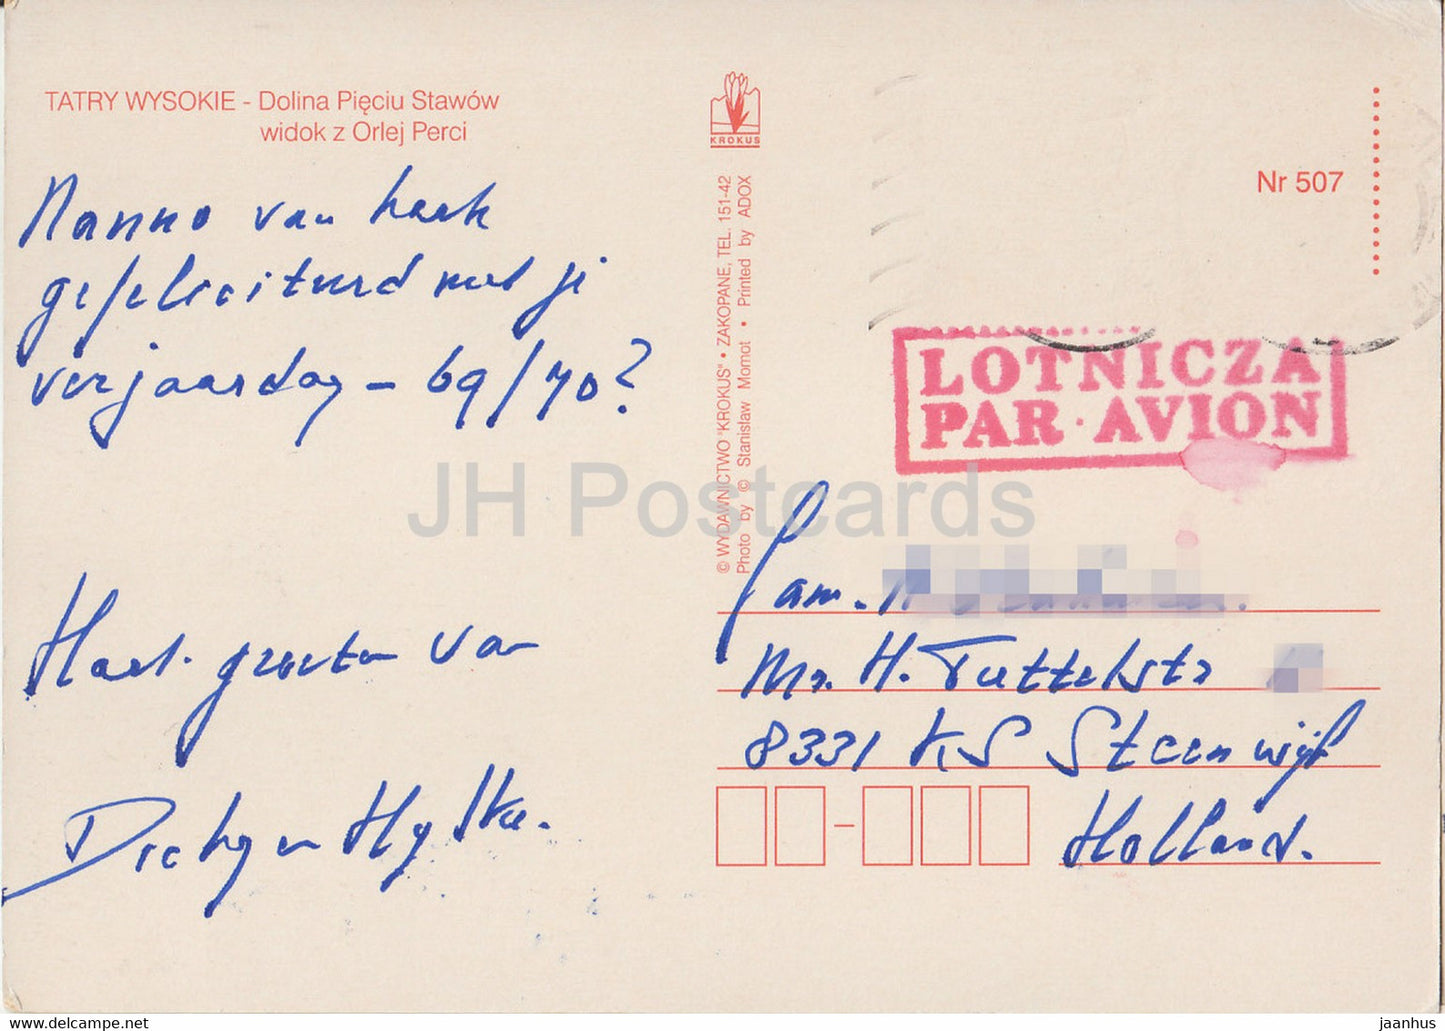 TATRY WYSOKIE - Dolina Pięciu Stawów
widok z Orlej Perci
Nanno van hark
gefeliciteerd met je
verjaardag - 69/70?
Hart. groeten van
Hylke.
KROKUS
© WYDAWNICTWO "KROKUS" • ZAKOPANE, TEL. 151-42
Photo by © Stanisław Momot • Printed by ADOX
Nr 507
LOTNICZA
PAR · AVION
JH Postcards
Fam.
Mr. H.
8331 KS Steenwijk
Holland.
delcampe.net
jaanhus